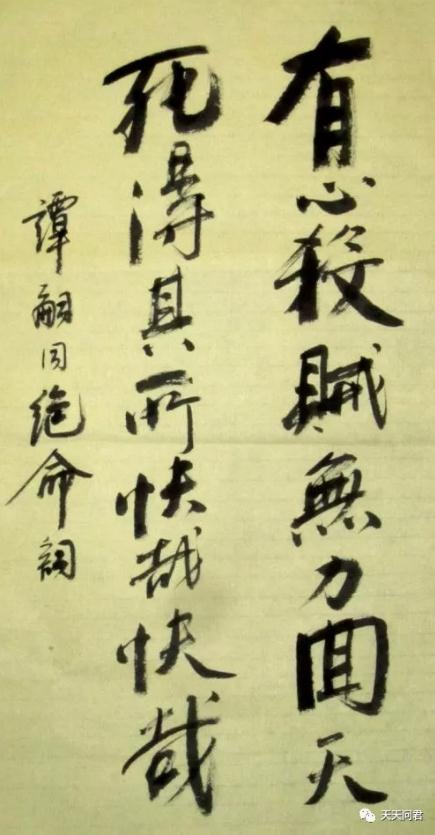 有心殺賊無力回天
死得其所快哉快哉
譚嗣同絕命詞
天天问君